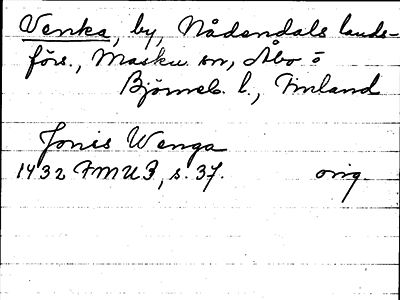 Venka, by, Nådendals lands-
förs., Masku sn, Åbo o
Björneb. l., Finland
Jonis Wenga
1432 FMU 3, s. 37. orig.